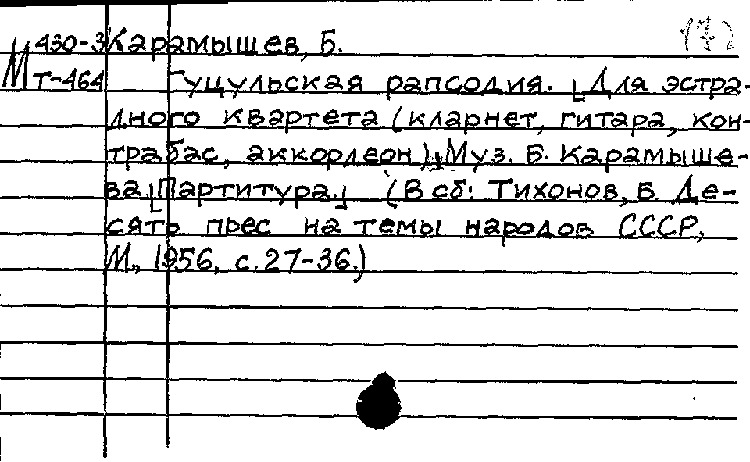 М 430-3 Карамышев, Б. (7)
Т-464 Гуцульская рапсодия. [Для эстра-
дного квартета (кларнет, гитара, кон-
трабас, аккордеон)]. Муз. Б. Карамыше-
ва [Партитура.] (В сб: Тихонов, Б. Де-
сять пьес на темы народов СССР,
М., 1956, с. 27-36.)